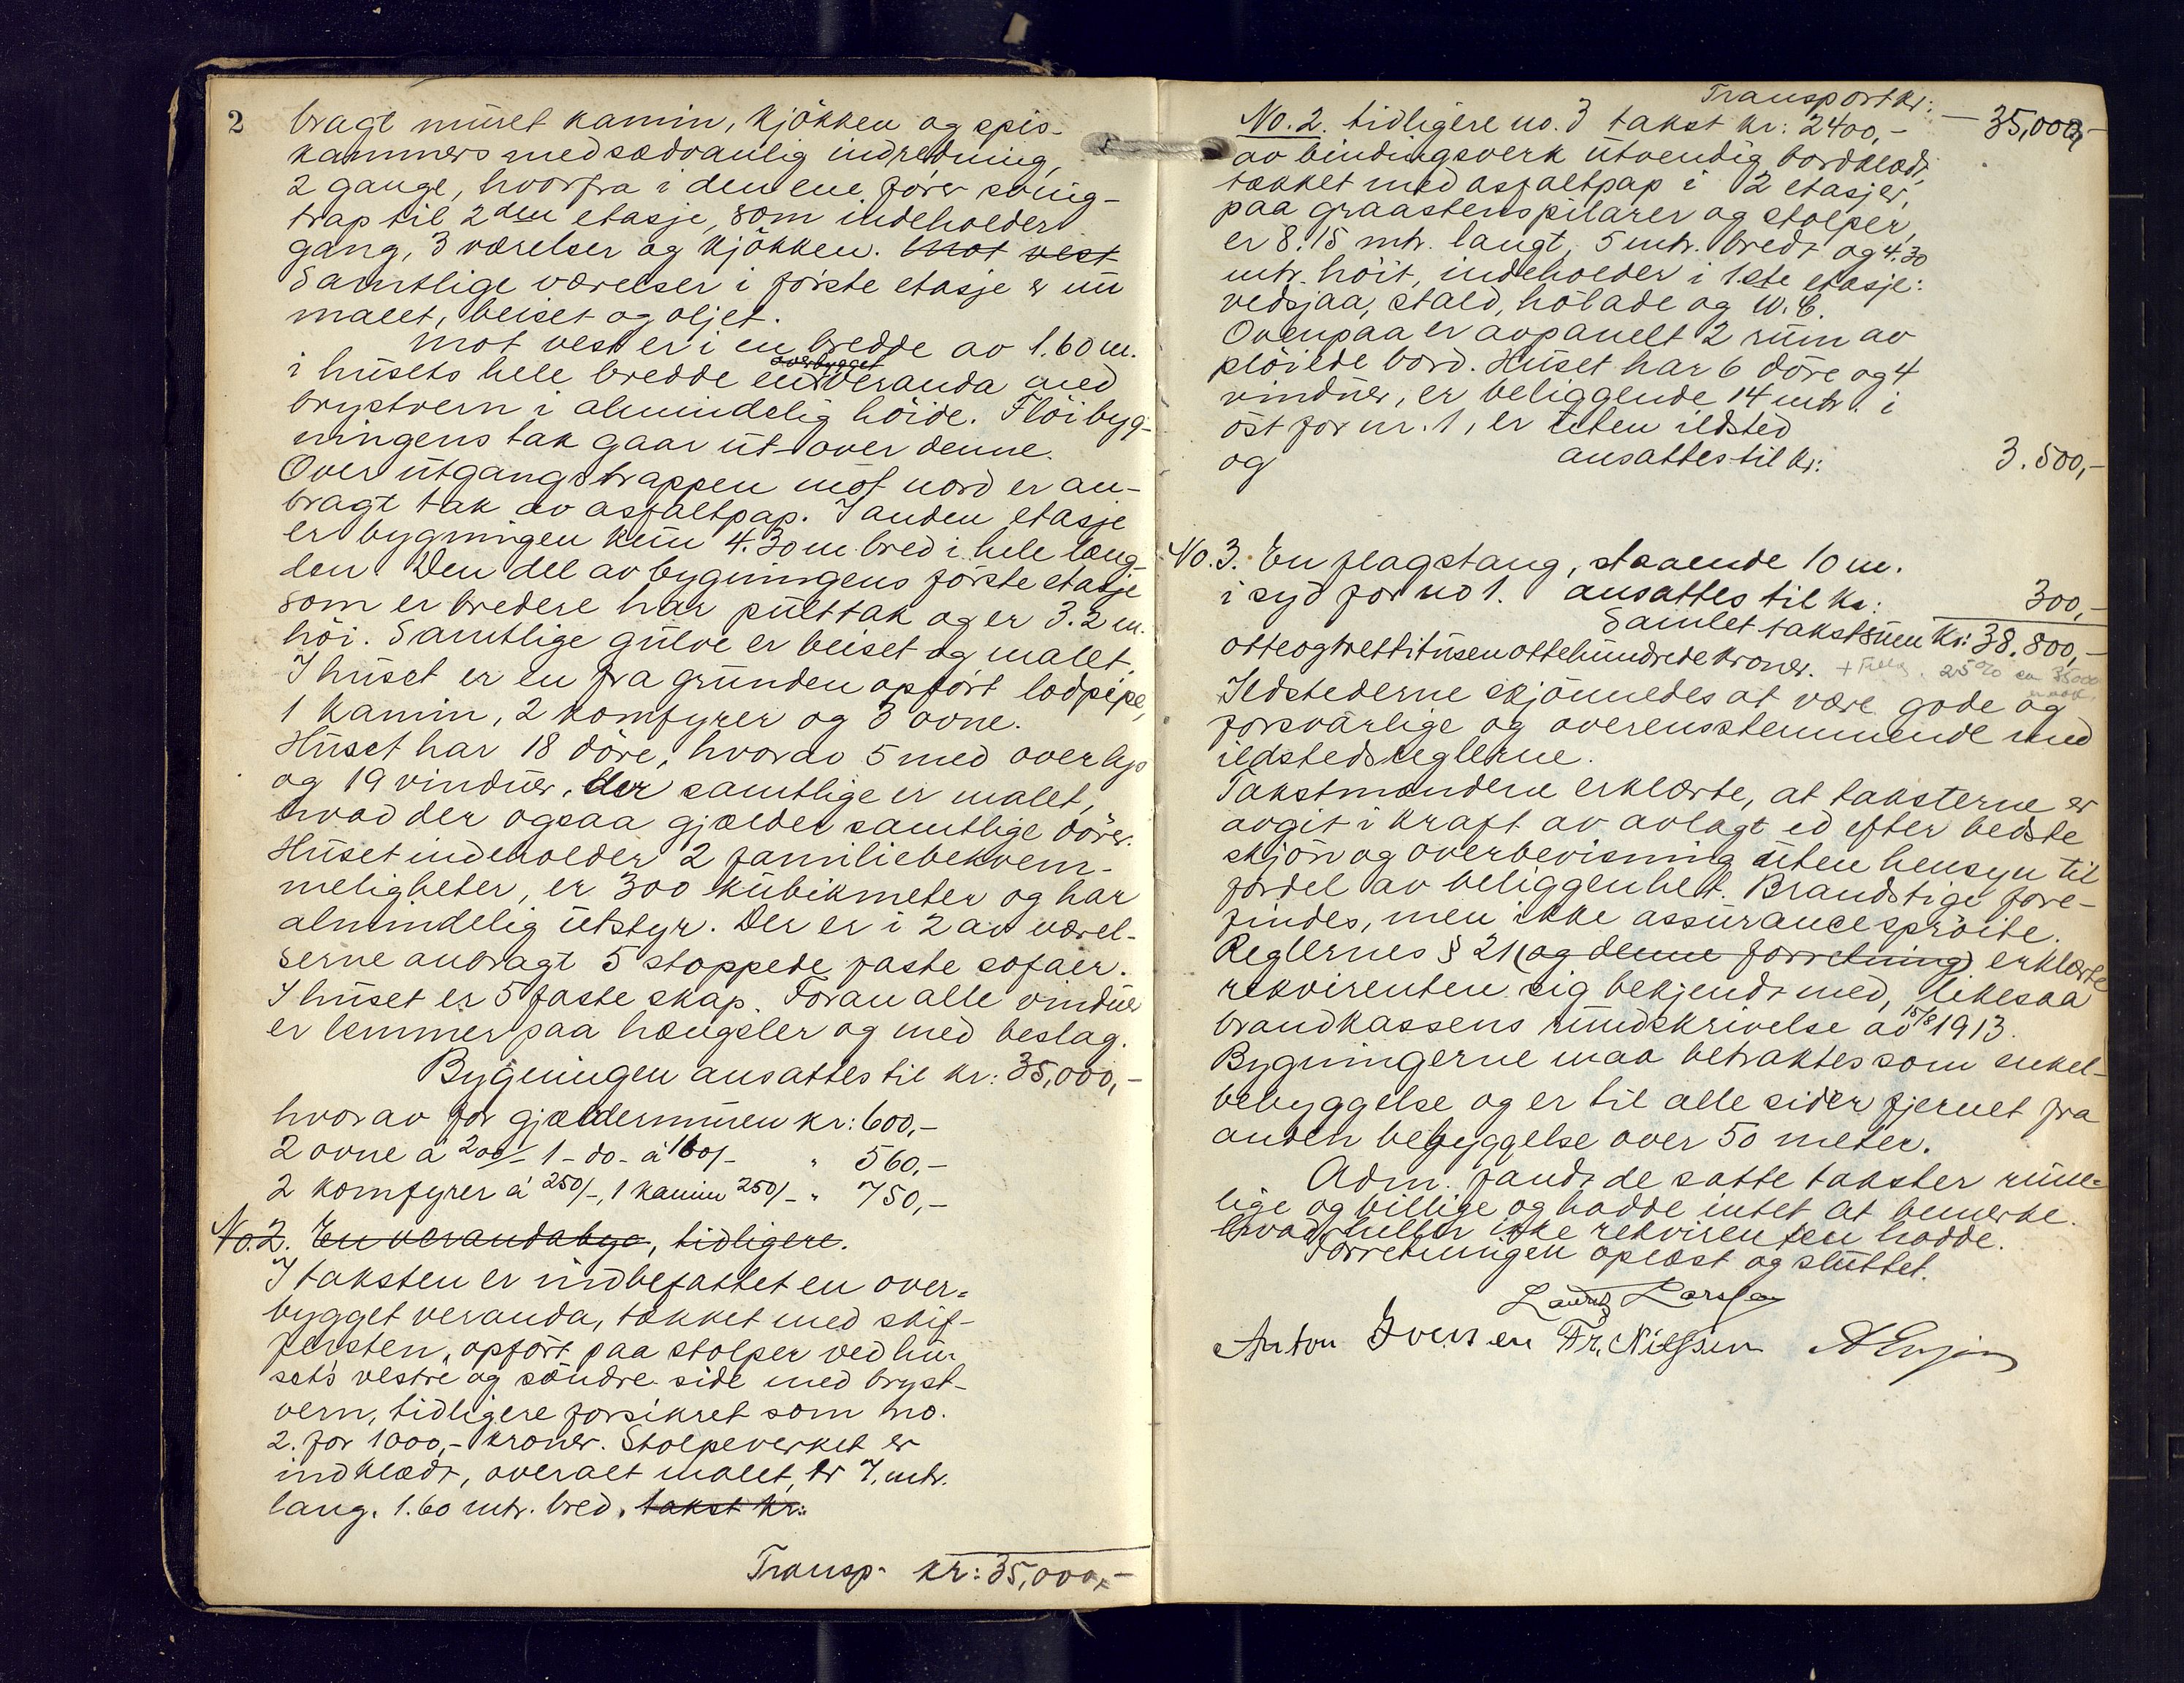 2
bragt muret kamin, kjøkken og spis-
kammers med sædvanlig indredning,
2 gange, hvorfra i den ene fører sving-
trap til 2den etasje, som indeholder
gang, 3 værelser og kjøkken. Mot vest
Samtlige værelser i første etasje er nu
malet, beiset og oljet.
Mot vest er i en bredde av 1.60 m.
overbygget
i husets hele bredde en veranda med
brystvern i almindelig høide. Fløibyg-
ningens tak gaar ut over denne.
Over utgangstrappen mot nord er an-
bragt tak av asfaltpap. I anden etasje
er bygningen kun 4.30 m. bred i hele læng-
den. Den del av bygningens første etasje
som er bredere har pulttak og er 3.2 m.
høi. Samtlige gulve er beiset og malet.
I huset er en fra grunden opført lodpipe,
1 kamin, 2 komfyrer og 3 ovne.
Huset har 18 døre, hvorav 5 med overlys
og 19 vinduer, der samtlige er malet,
hvad der ogsaa gjælder samtlige døre.
Huset indeholder 2 familiebekvem-
meligheter, er 300 kubikmeter og har
almindelig utstyr. Der er i 2 av værel-
serne anbragt 5 stoppede faste sofaer.
I huset er 5 faste skap. Foran alle vinduer
er lemmer paa hængsler og med beslag.
Bygningen ansattes til kr: 35,000,-
hvorav for gjældermuren kr: 600,-
2 ovne á 200/- 1 - do - á 160/- " 560,-
2 komfyrer á 250/-, 1 kamin 250/- " 750,-
No. 2. En verandabyg, tidligere.
I taksten er indbefattet en over-
bygget veranda, tækket med skif-
fersten, opført paa stolper ved hu-
sets vestre og søndre side med bryst-
vern, tidligere forsikret som no.
2. for 1000,- kroner. Stolpeverket er
indklædt, overalt malet, er 7. mtr.
lang. 1.60 mtr. bred. takst kr:
Transp. kr: 35,000,-
Transport kr: - 35,000,-
No. 2. tidligere no. 3 takst kr: 2400,-
av bindingsverk utvendig bordklædt,
tækket med asfaltpap i 2 etasjer,
paa graastenspilarer og stolper,
er 8.15 mtr. langt, 5 mtr. bredt og 4.30
mtr. høit, indeholder i 1.ste etasje:
vedsjaa, stald, høilade og W.C.
Ovenpaa er avpanelt 2 rum av
pløiede bord. Huset har 6 døre og 4
vinduer, er beliggende 14 mtr. i
øst for nr. 1, er uten ildsted
og ansattes til kr: 3.500,-
No. 3. En flagstang, staaende 10 m.
i syd for no 1. ansattes til kr: 300,-
Samlet takstsum kr: 38.800,-
otteogtrettitusenottehundredekroner. + 25% 35000
Ildstederne skjønnedes at være gode og
forsvarlige og overensstemmende med
ildstedsreglerne.
Takstmændene erklærte, at taksterne er
avgit i kraft av avlagt ed efter bedste
skjøn og overbevisning uten hensyn til
fordel av beliggenhet. Brandstige fore-
findes, men ikke assurancesprøite.
Reglernes § 21 (og denne forretning) erklærte
rekvirenten sig bekjendt med, likesaa
brandkassens rundskrivelse av 15/8 1913.
Bygningerne maa betraktes som enkel-
bebyggelse og er til alle sider fjernet fra
anden bebyggelse over 50 meter.
Adm. fandt de satte takster rime-
lige og billige og hadde intet at bemerke.
hvad heller ikke rekvirenten hadde.
Forretningen oplæst og sluttet.
Lauritz Larsen
Anton Iversen Fr. Nilssen